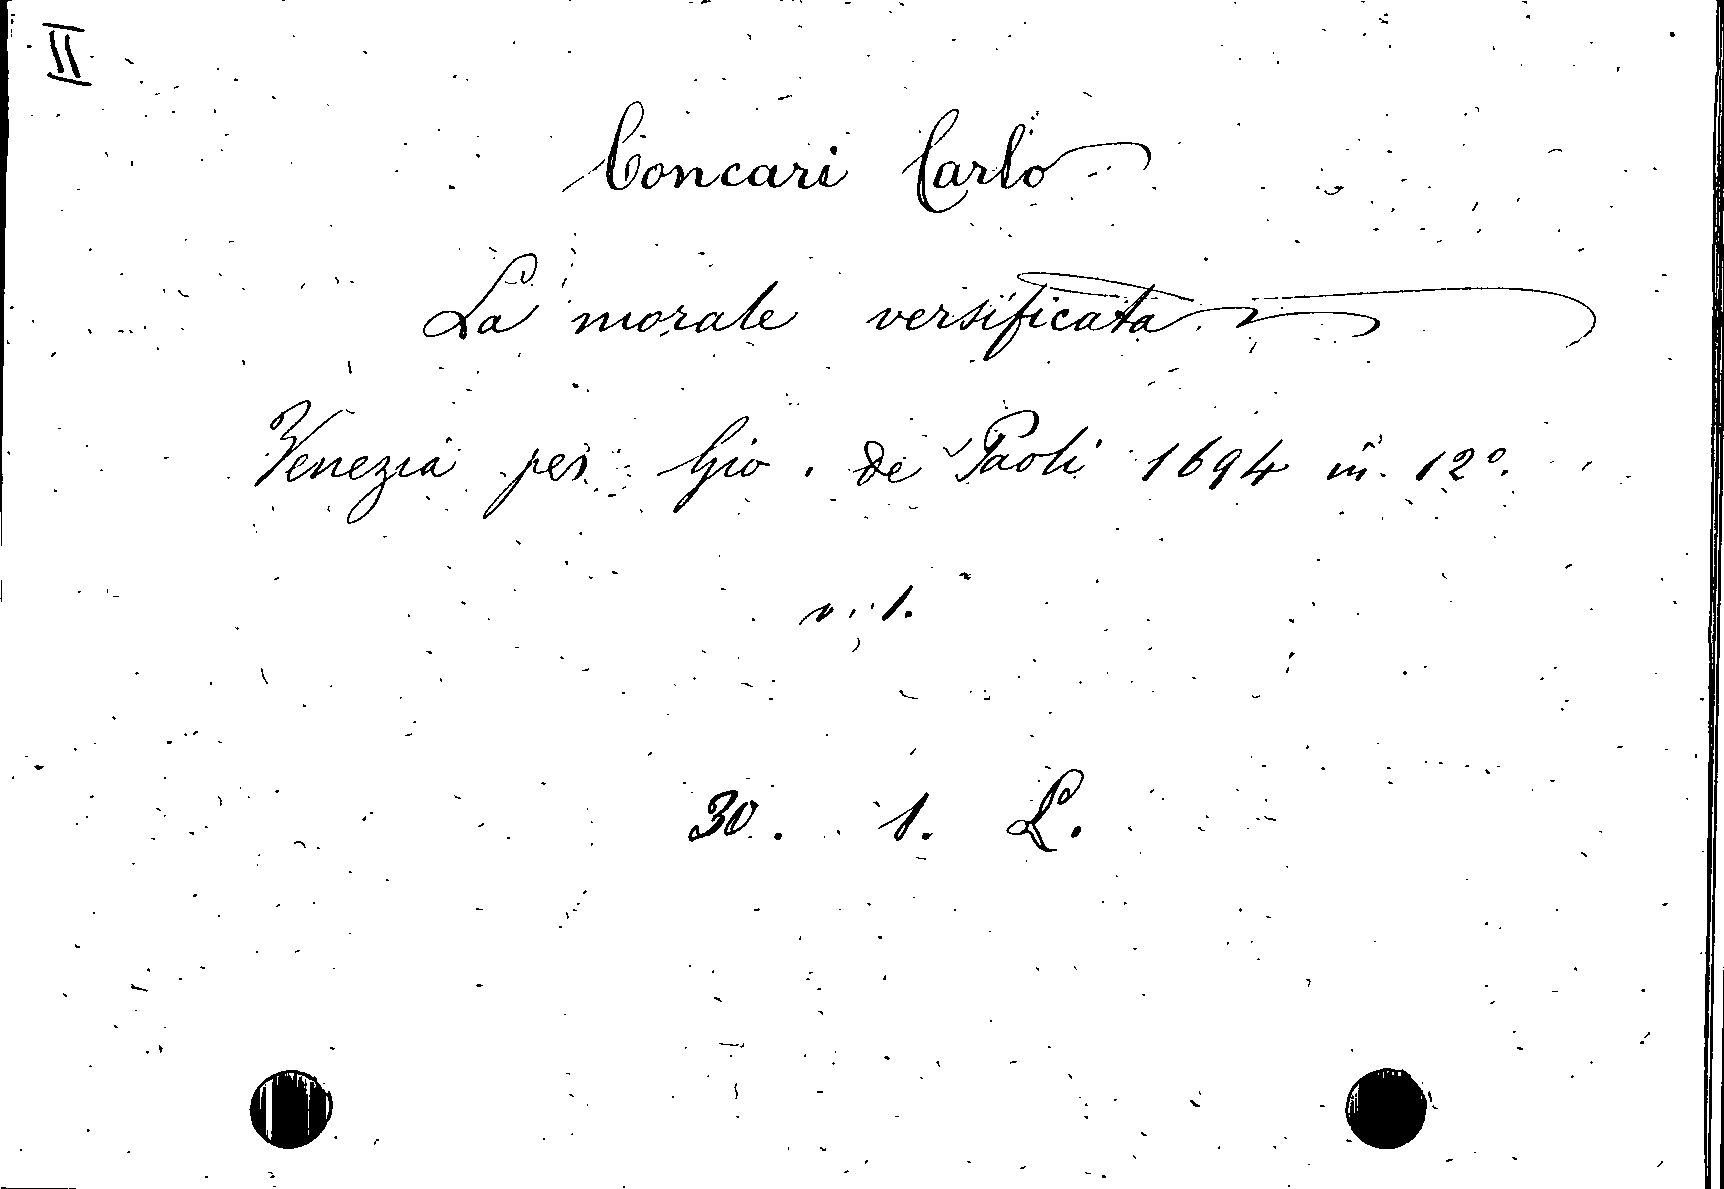 II
Concari Carlo
La morale versificata
Venezia per Gio. de Paoli 1694 in. 12º.
v. 1.
30. 1. L.